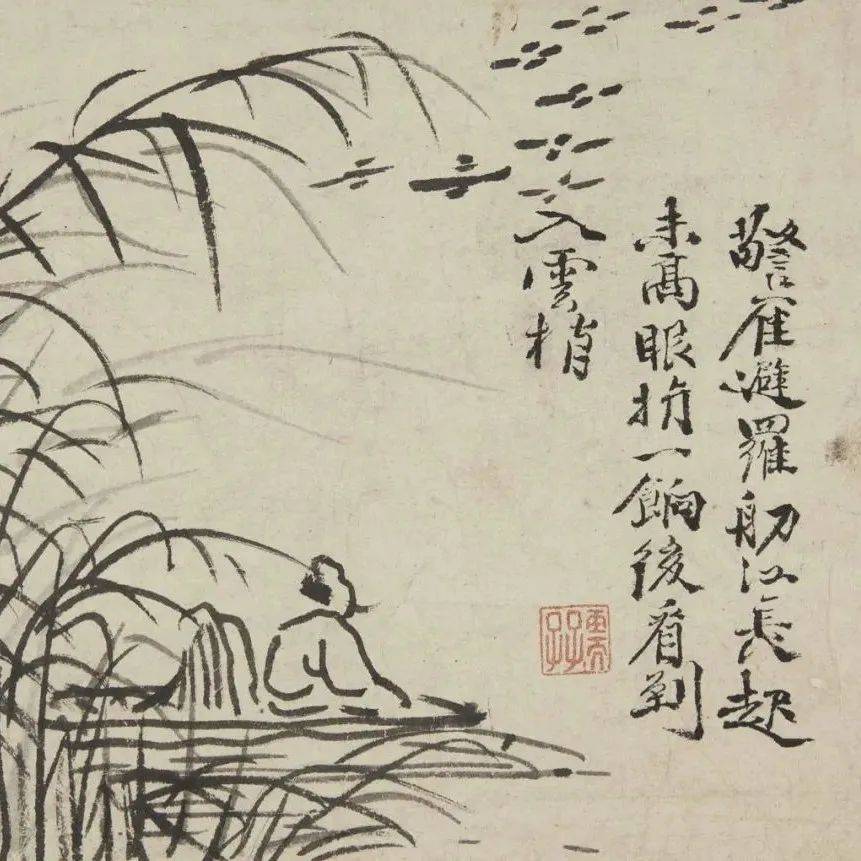 警雁避羅舠江長起
未高眼一餉後看到
入雲梢